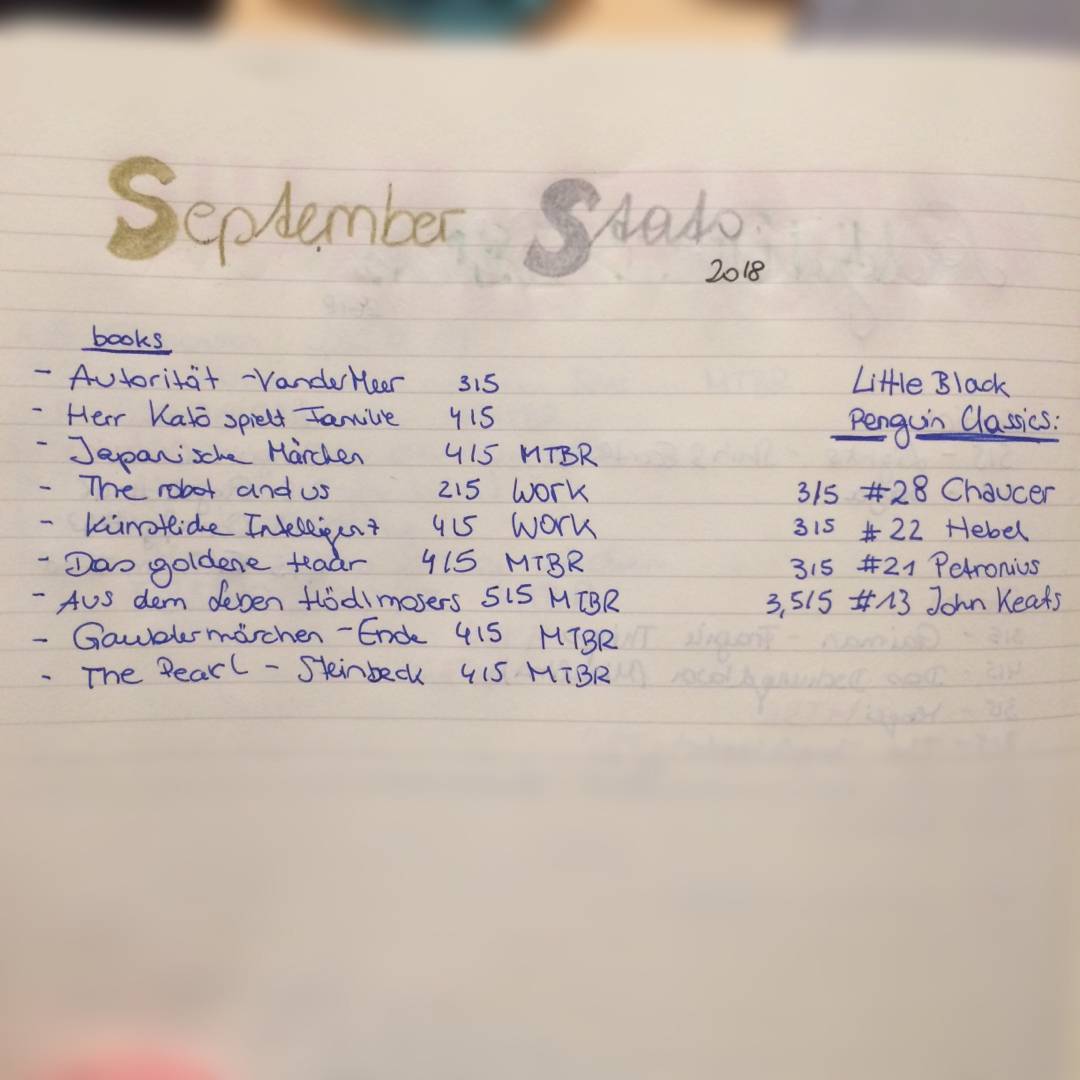 September Stats
2018
books
- Autorität - VanderMeer 3/5
- Herr Katō spielt Familie 4/5
- Japanische Märchen 4/5 MTBR
- The robot and us 2/5 Work
- Künstliche Intelligenz 4/5 Work
- Das goldene Haar 4/5 MTBR
- Aus dem Leben Hödlmosers 5/5 MTBR
- Gauklermärchen - Ende 4/5 MTBR
- The Pearl - Steinbeck 4/5 MTBR
Little Black
Penguin Classics:
3/5 #28 Chaucer
3/5 #22 Hebel
3/5 #21 Petronius
3,5/5 #13 John Keats